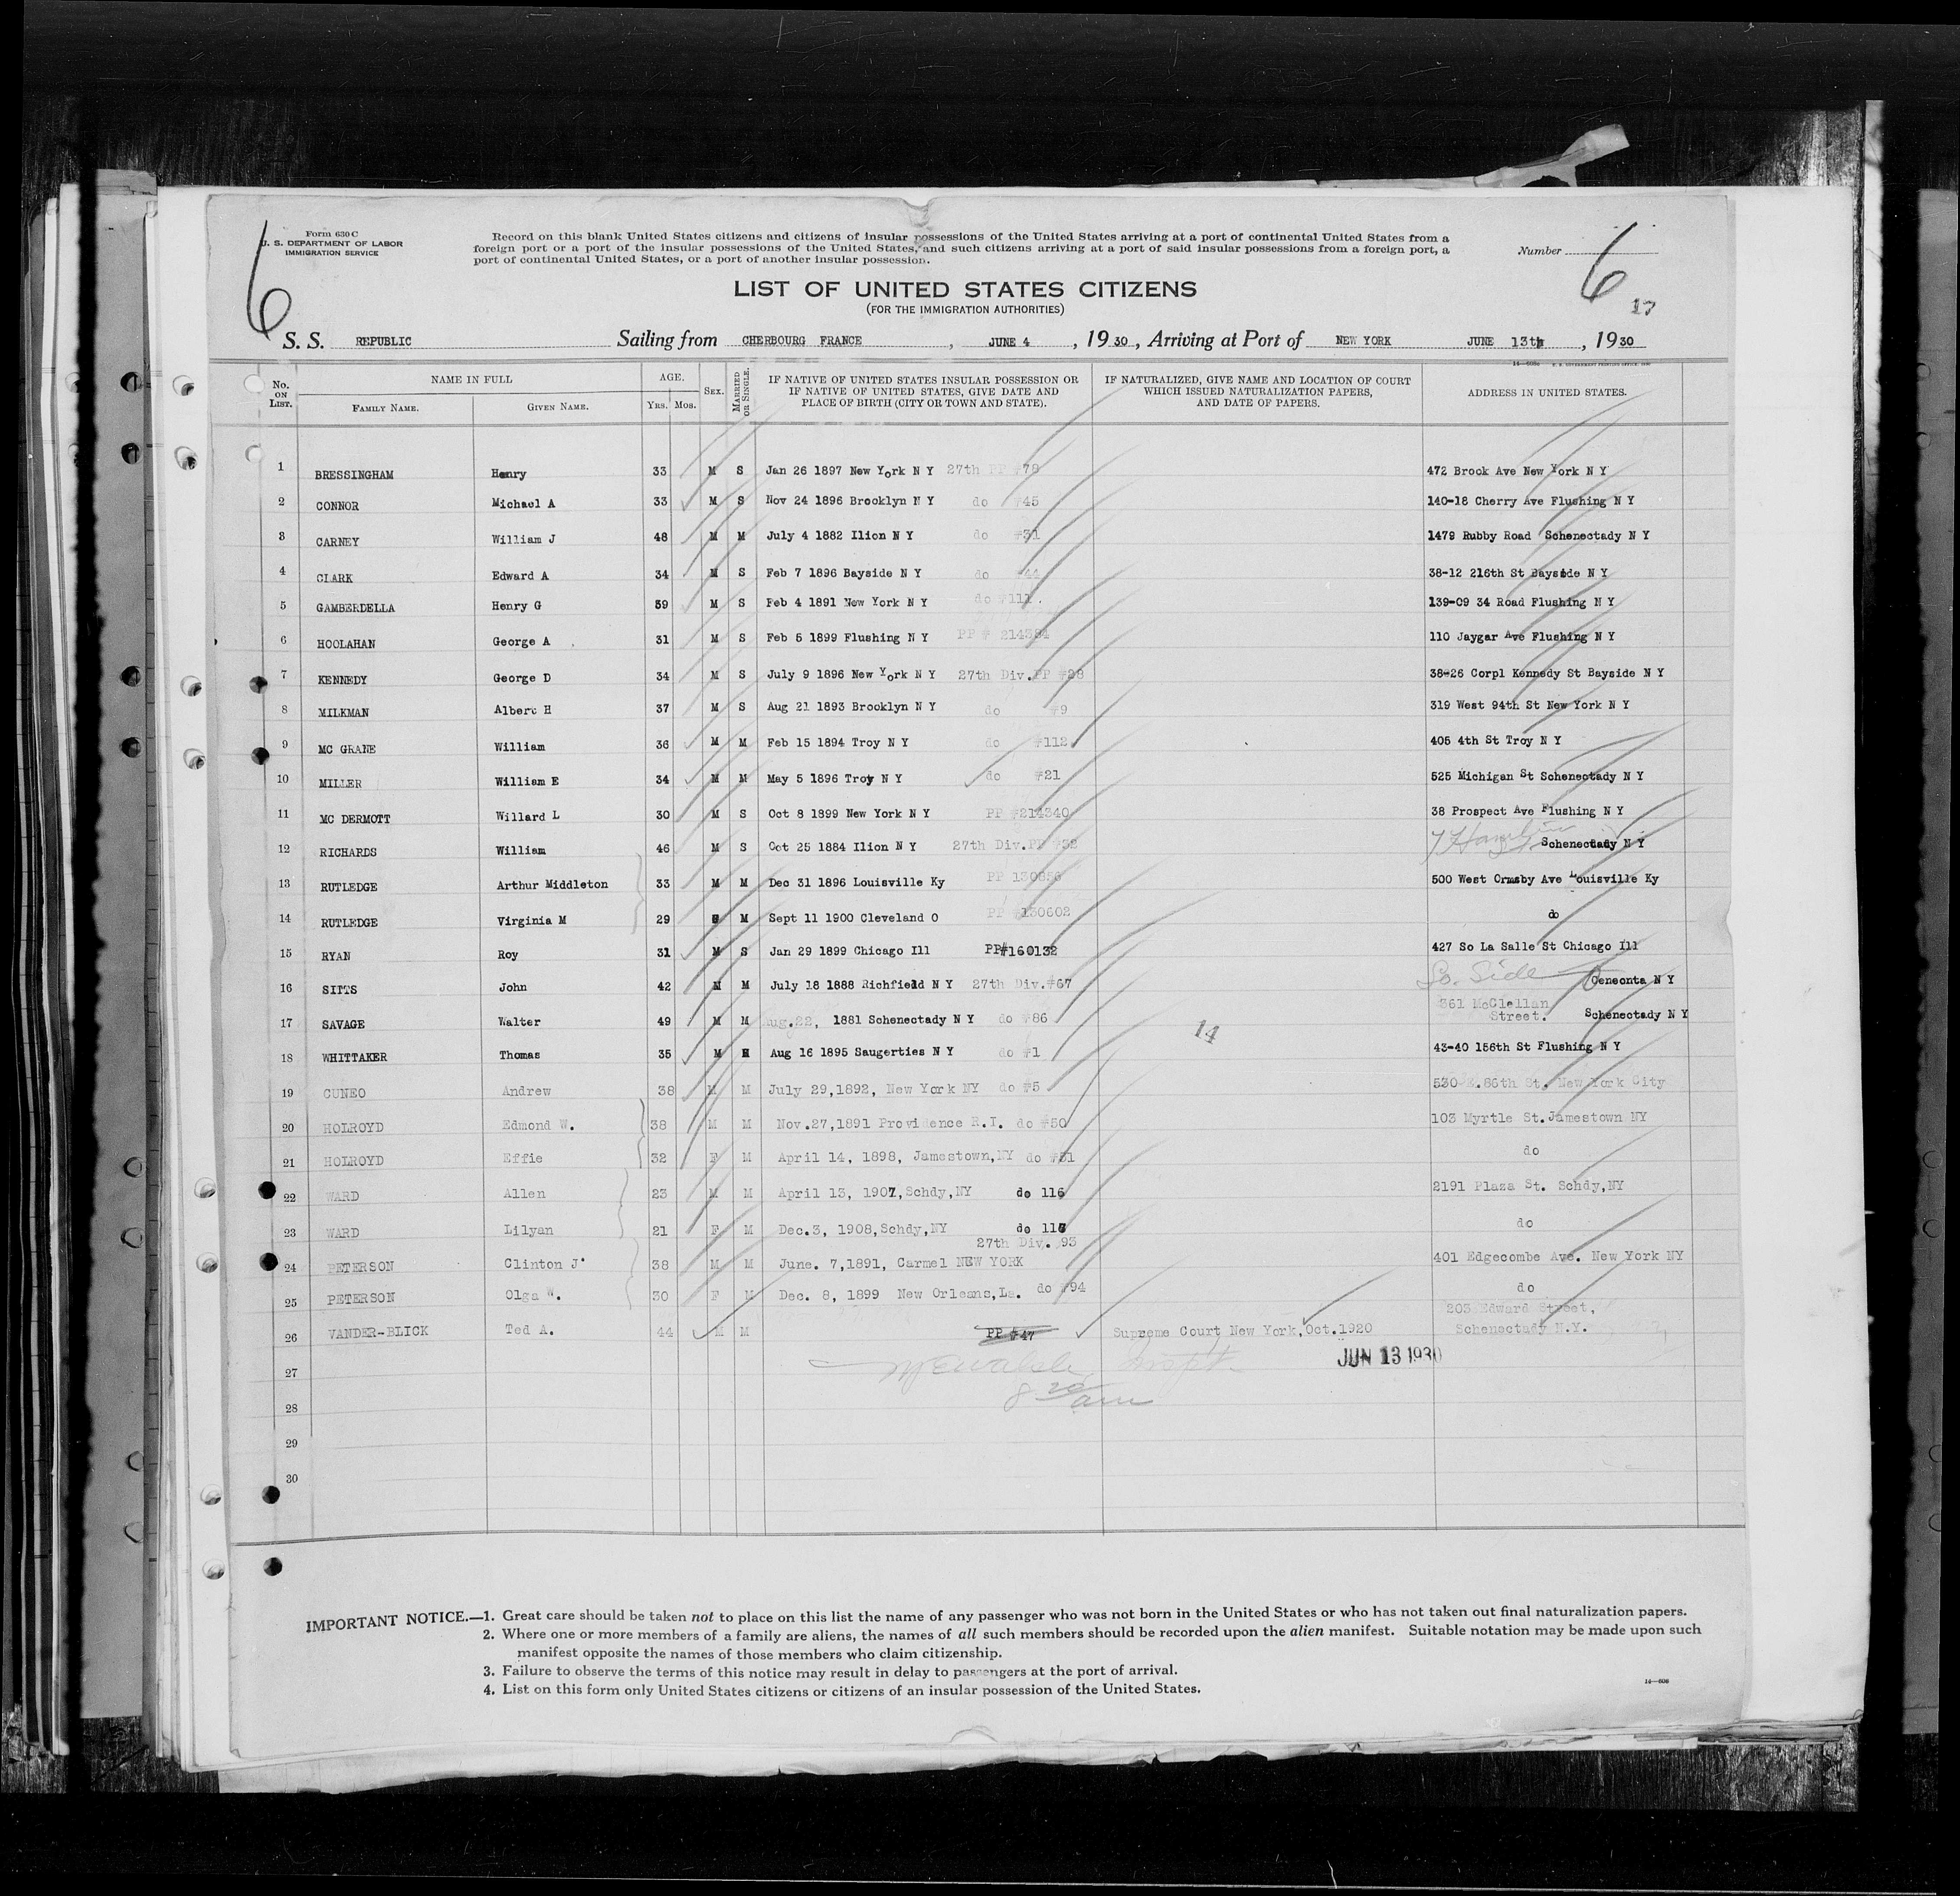 Form 630 C
U. S. DEPARTMENT OF LABOR
IMMIGRATION SERVICE
6
Record on this blank United States citizens and citizens of insular possessions of the United States arriving at a port of continental United States from a
foreign port or a port of the insular possessions of the United States, and such citizens arriving at a port of said insular possessions from a foreign port, a
port of continental United States, or a port of another insular possession.
Number 6
17
LIST OF UNITED STATES CITIZENS
(FOR THE IMMIGRATION AUTHORITIES)
S. S. REPUBLIC Sailing from CHERBOURG FRANCE , JUNE 4 , 19 30 , Arriving at Port of NEW YORK JUNE 13th , 19 30
No. ON LIST. NAME IN FULL FAMILY NAME. GIVEN NAME. AGE. YRS. MOS. SEX. MARRIED OR SINGLE. IF NATIVE OF UNITED STATES INSULAR POSSESSION OR IF NATIVE OF UNITED STATES, GIVE DATE AND PLACE OF BIRTH (CITY OR TOWN AND STATE). IF NATURALIZED, GIVE NAME AND LOCATION OF COURT WHICH ISSUED NATURALIZATION PAPERS, AND DATE OF PAPERS. ADDRESS IN UNITED STATES.
1 BRESSINGHAM Henry 33 M S Jan 26 1897 New York N Y 27th PP #78 472 Brook Ave New York N Y
2 CONNOR Michael A 33 M S Nov 24 1896 Brooklyn N Y do #45 140-18 Cherry Ave Flushing N Y
3 CARNEY William J 48 M M July 4 1882 Ilion N Y do #31 1479 Rubby Road Schenectady N Y
4 CLARK Edward A 34 M S Feb 7 1896 Bayside N Y do #44 38-12 216th St Bayside N Y
5 GAMBERDELLA Henry G 39 M S Feb 4 1891 New York N Y do #111. 139-09 34 Road Flushing N Y
6 HOOLAHAN George A 31 M S Feb 5 1899 Flushing N Y PP # 214384 110 Jaygar Ave Flushing N Y
7 KENNEDY George D 34 M S July 9 1896 New York N Y 27th Div.PP #28 38-26 Corpl Kennedy St Bayside N Y
8 MILKMAN Albert H 37 M S Aug 21 1893 Brooklyn N Y do #9 319 West 94th St New York N Y
9 MC GRANE William 36 M M Feb 15 1894 Troy N Y do #112 405 4th St Troy N Y
10 MILLER William E 34 M M May 5 1896 Troy N Y do #21 525 Michigan St Schenectady N Y
11 MC DERMOTT Willard L 30 M S Oct 8 1899 New York N Y PP #214340 38 Prospect Ave Flushing N Y
12 RICHARDS William 46 M S Oct 25 1884 Ilion N Y 27th Div.PP #32 Schenectady N Y
13 RUTLEDGE Arthur Middleton 33 M M Dec 31 1896 Louisville Ky PP 130856 500 West Ormsby Ave Louisville Ky
14 RUTLEDGE Virginia M 29 F M Sept 11 1900 Cleveland O PP #130602 do
15 RYAN Roy 31 M S Jan 29 1899 Chicago Ill PP#160132 427 So La Salle St Chicago Ill
16 SITTS John 42 M M July 18 1888 Richfield N Y 27th Div.#67 So. Side Oneonta N Y
17 SAVAGE Walter 49 M M Aug.22, 1881 Schenectady N Y do #86 361 McClellan Street. Schenectady N Y
14
18 WHITTAKER Thomas 35 M M Aug 16 1895 Saugerties N Y do #1 43-40 156th St Flushing N Y
19 CUNEO Andrew 38 M M July 29,1892, New York NY do #5 530 E.86th St. New York City
20 HOLROYD Edmond W. 38 M M Nov.27,1891 Providence R.I. do #50 103 Myrtle St.Jamestown NY
21 HOLROYD Effie 32 F M April 14, 1898, Jamestown,NY do #51 do
22 WARD Allen 23 M M April 13, 1907,Schdy,NY do 116 2191 Plaza St. Schdy,NY
23 WARD Lilyan 21 F M Dec.3, 1908,Schdy,NY do 117 do
24 PETERSON Clinton J. 38 M M June. 7,1891, Carmel NEW YORK 27th Div. 93 401 Edgecombe Ave. New York NY
25 PETERSON Olga W. 30 F M Dec. 8, 1899 New Orleans,La. do #94 do
26 VANDER-BLICK Ted A. 44 M M PP #47 Supreme Court New York,Oct.1920 203 Edward Street, Schenectady N.Y.
27 JUN 13 1930
28 8 20 am
29
30
IMPORTANT NOTICE.—1. Great care should be taken not to place on this list the name of any passenger who was not born in the United States or who has not taken out final naturalization papers.
2. Where one or more members of a family are aliens, the names of all such members should be recorded upon the alien manifest. Suitable notation may be made upon such
manifest opposite the names of those members who claim citizenship.
3. Failure to observe the terms of this notice may result in delay to passengers at the port of arrival.
4. List on this form only United States citizens or citizens of an insular possession of the United States.
14—606